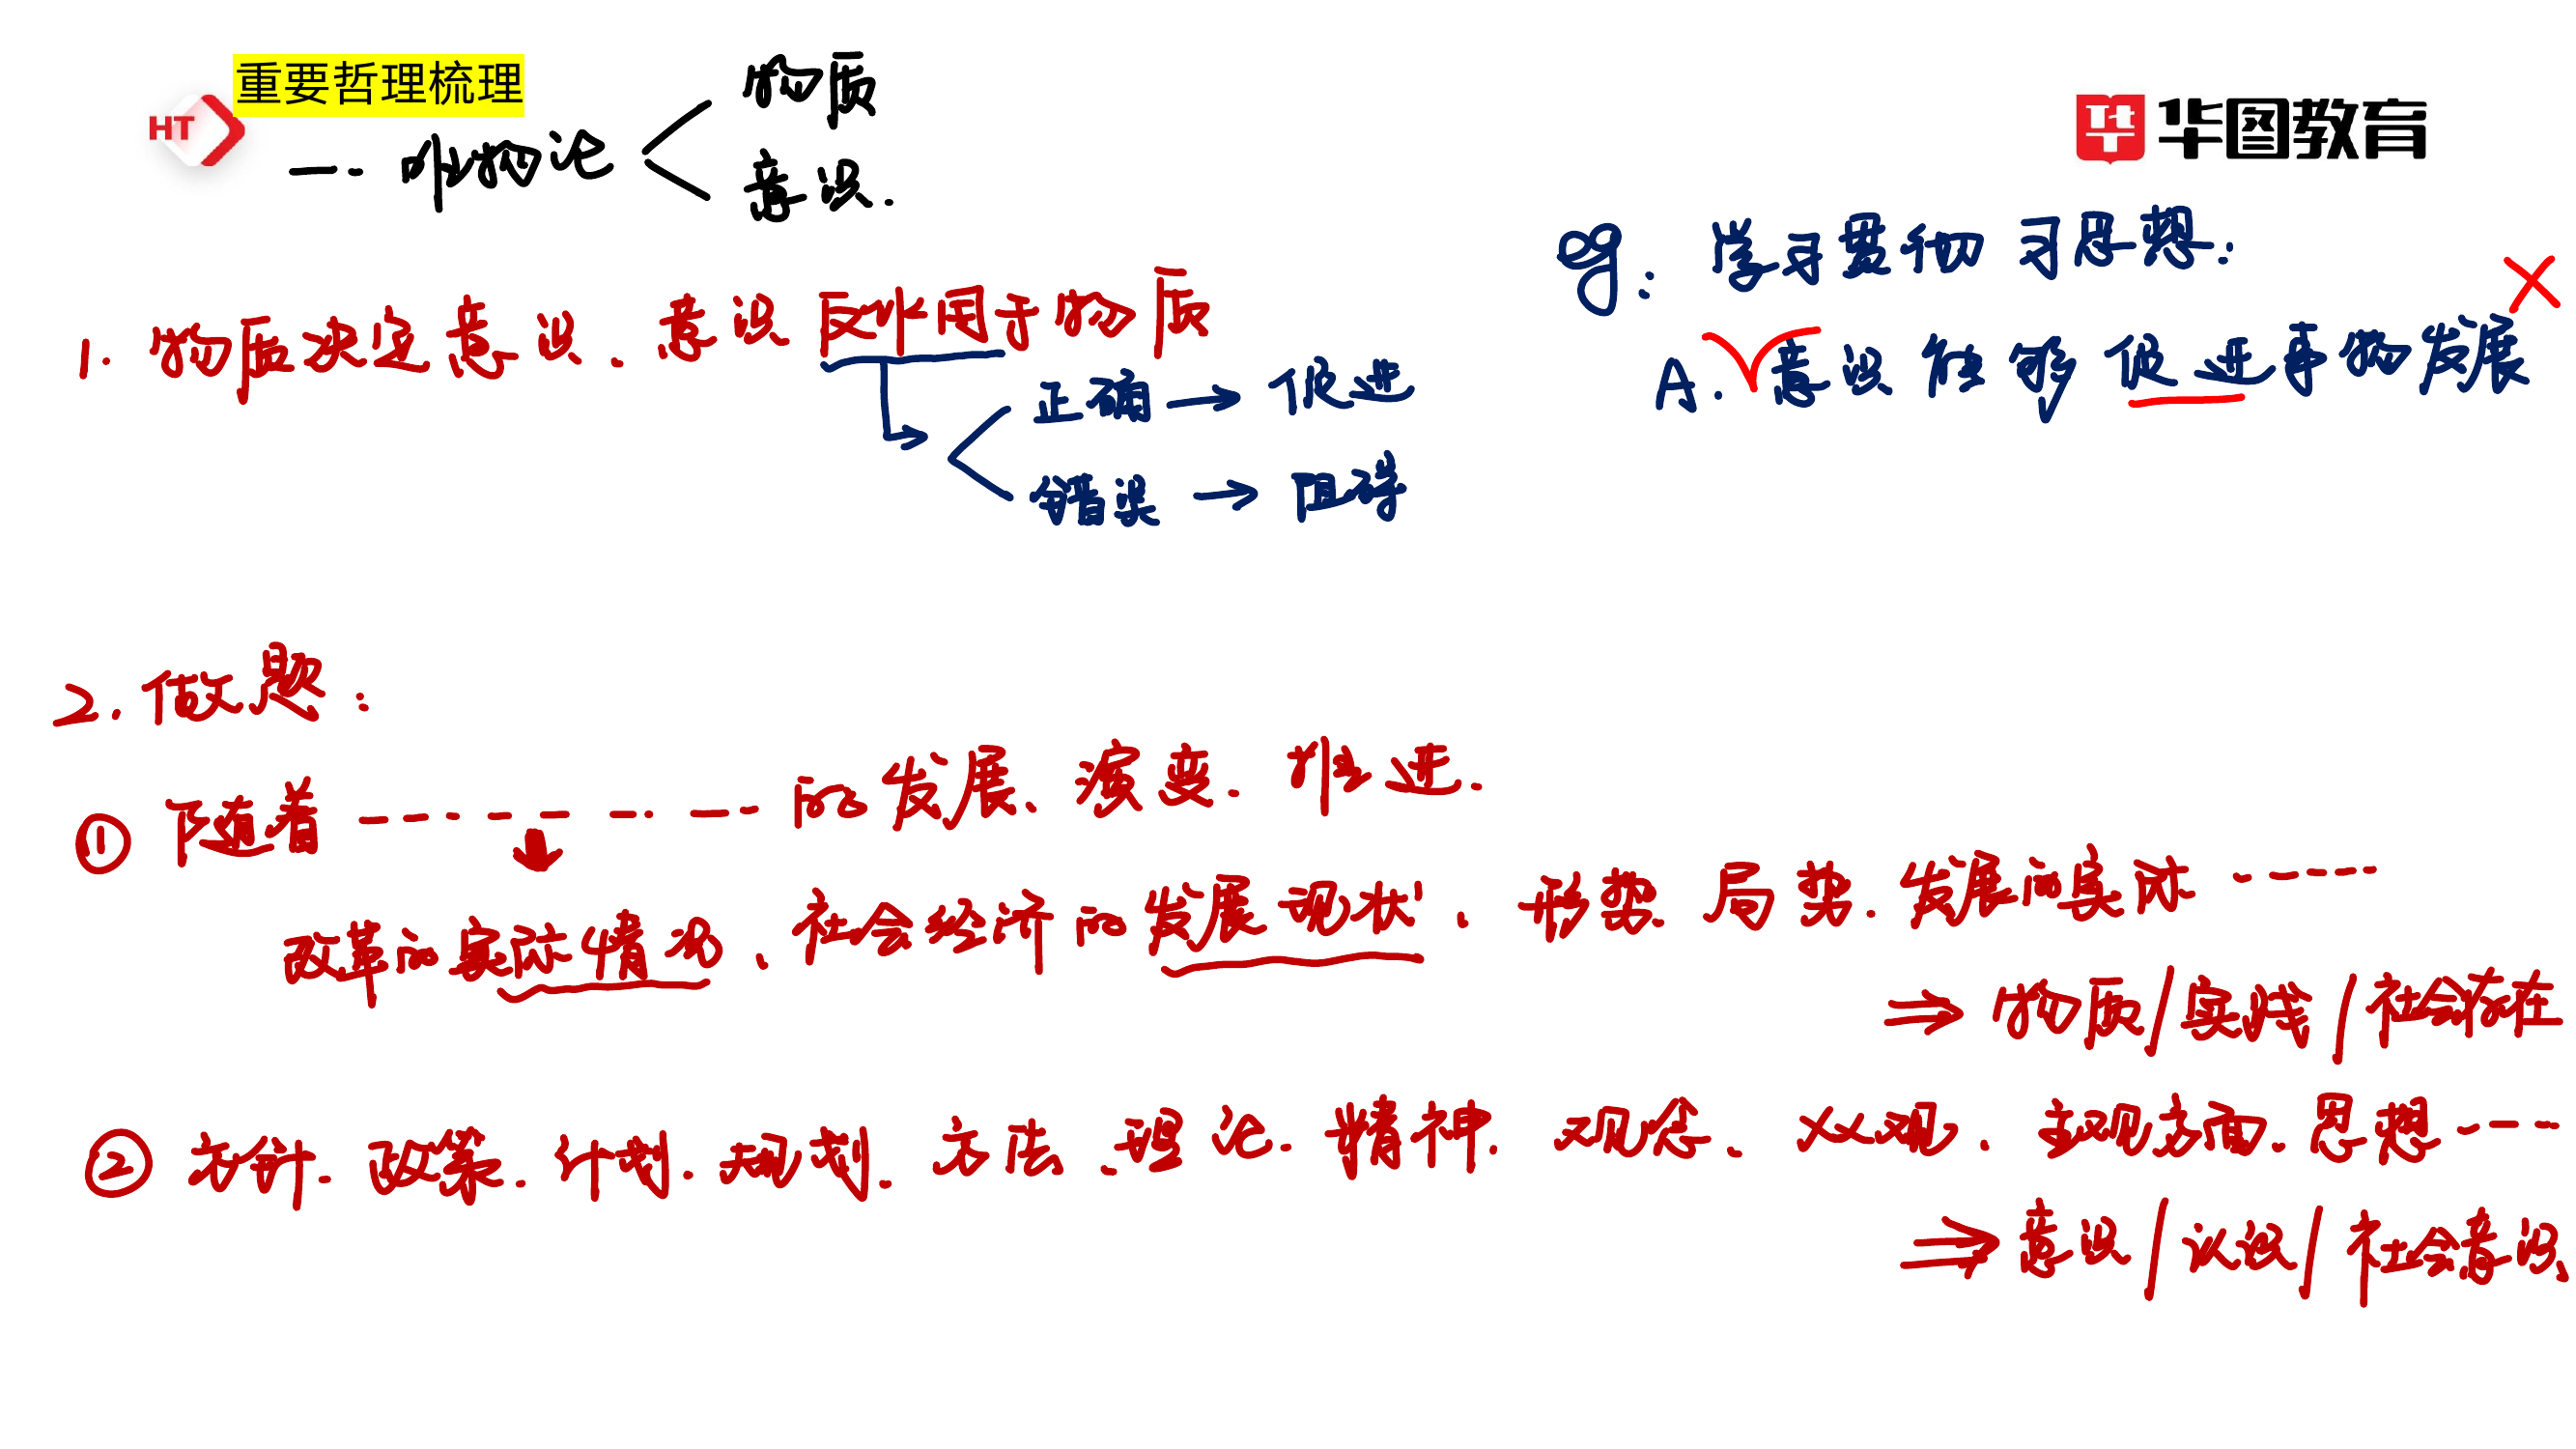 重要哲理梳理
HT
华图教育
一. 唯物论
物质
意识.
1. 物质决定意识、意识反作用于物质
正确 → 促进
错误 → 阻碍
eg: 学习贯彻习思想:
A. 意识能够促进事物发展
2. 做题:
① 随着 ------- 的发展、演变. 推进.
改革的实际情况、社会经济的发展现状、形势. 局势. 发展的实际 -----
⇒ 物质/实践/社会存在
② 方针. 政策. 计划. 规划. 方法、理论. 精神. 观念、XX观、主观方面. 思想----
⇒ 意识/认识/社会意识